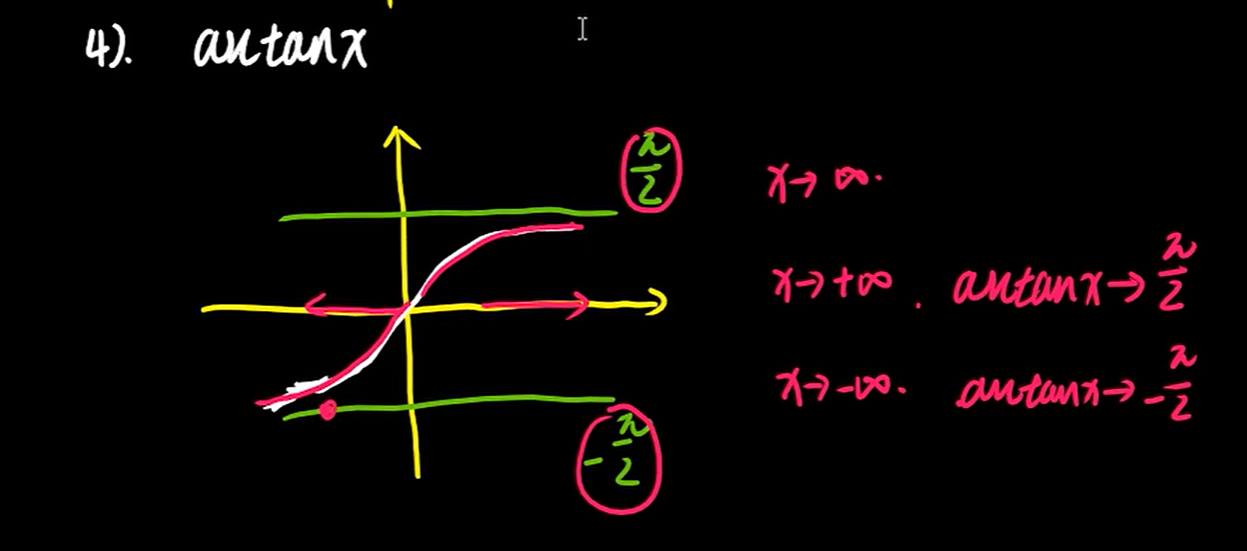 4). arctanx
π/2
x→∞.
x→+∞. arctanx→π/2
x→-∞. arctanx→-π/2
-π/2